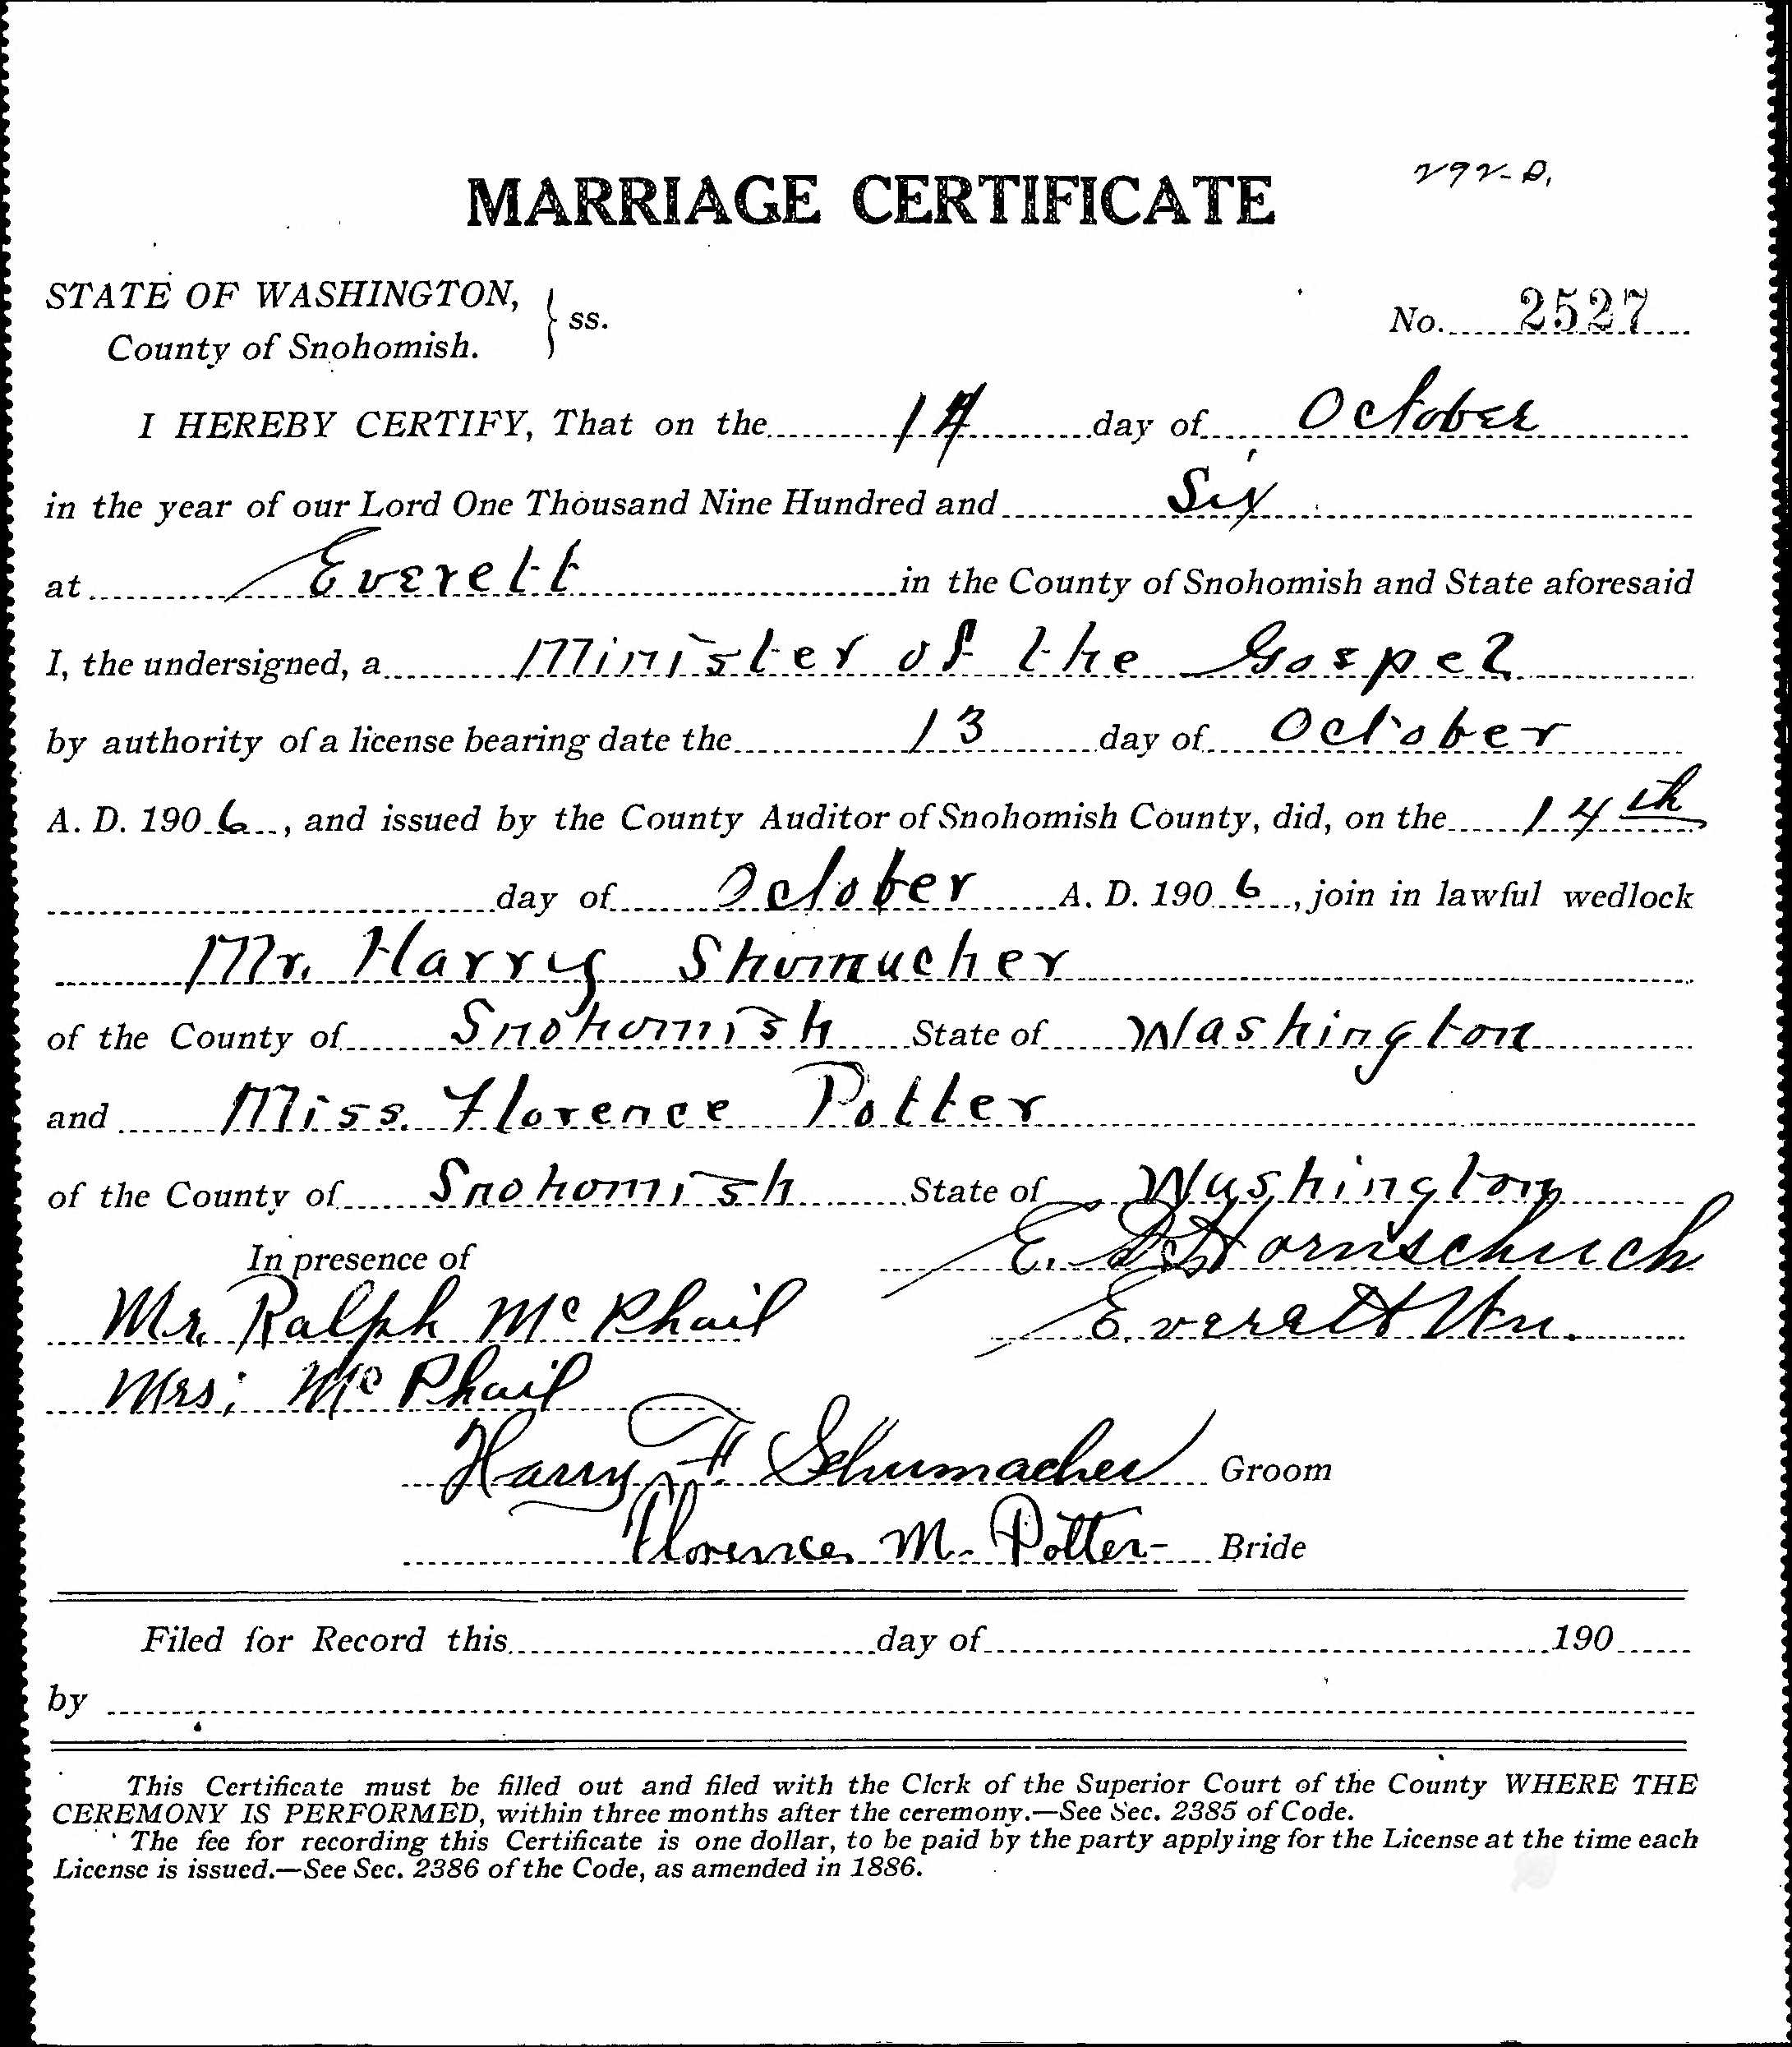 292-D.
MARRIAGE CERTIFICATE
STATE OF WASHINGTON,
County of Snohomish. } ss.
No. 2527
I HEREBY CERTIFY, That on the 14 day of October
in the year of our Lord One Thousand Nine Hundred and Six
at Everett in the County of Snohomish and State aforesaid
I, the undersigned, a Minister of the Gospel
by authority of a license bearing date the 13 day of October
A. D. 1906, and issued by the County Auditor of Snohomish County, did, on the 14th
day of October A. D. 1906, join in lawful wedlock
Mr. Harry Shumucher
of the County of Snohomish State of Washington
and Miss. Florence Potter
of the County of Snohomish State of Washington
In presence of E. Hornschuch
Mr. Ralph McPhail Everett Wn.
Mrs. McPhail
Harry F. Schumacher Groom
Florence M. Potter Bride
Filed for Record this day of 190
by
This Certificate must be filled out and filed with the Clerk of the Superior Court of the County WHERE THE
CEREMONY IS PERFORMED, within three months after the ceremony.—See Sec. 2385 of Code.
The fee for recording this Certificate is one dollar, to be paid by the party applying for the License at the time each
License is issued.—See Sec. 2386 of the Code, as amended in 1886.